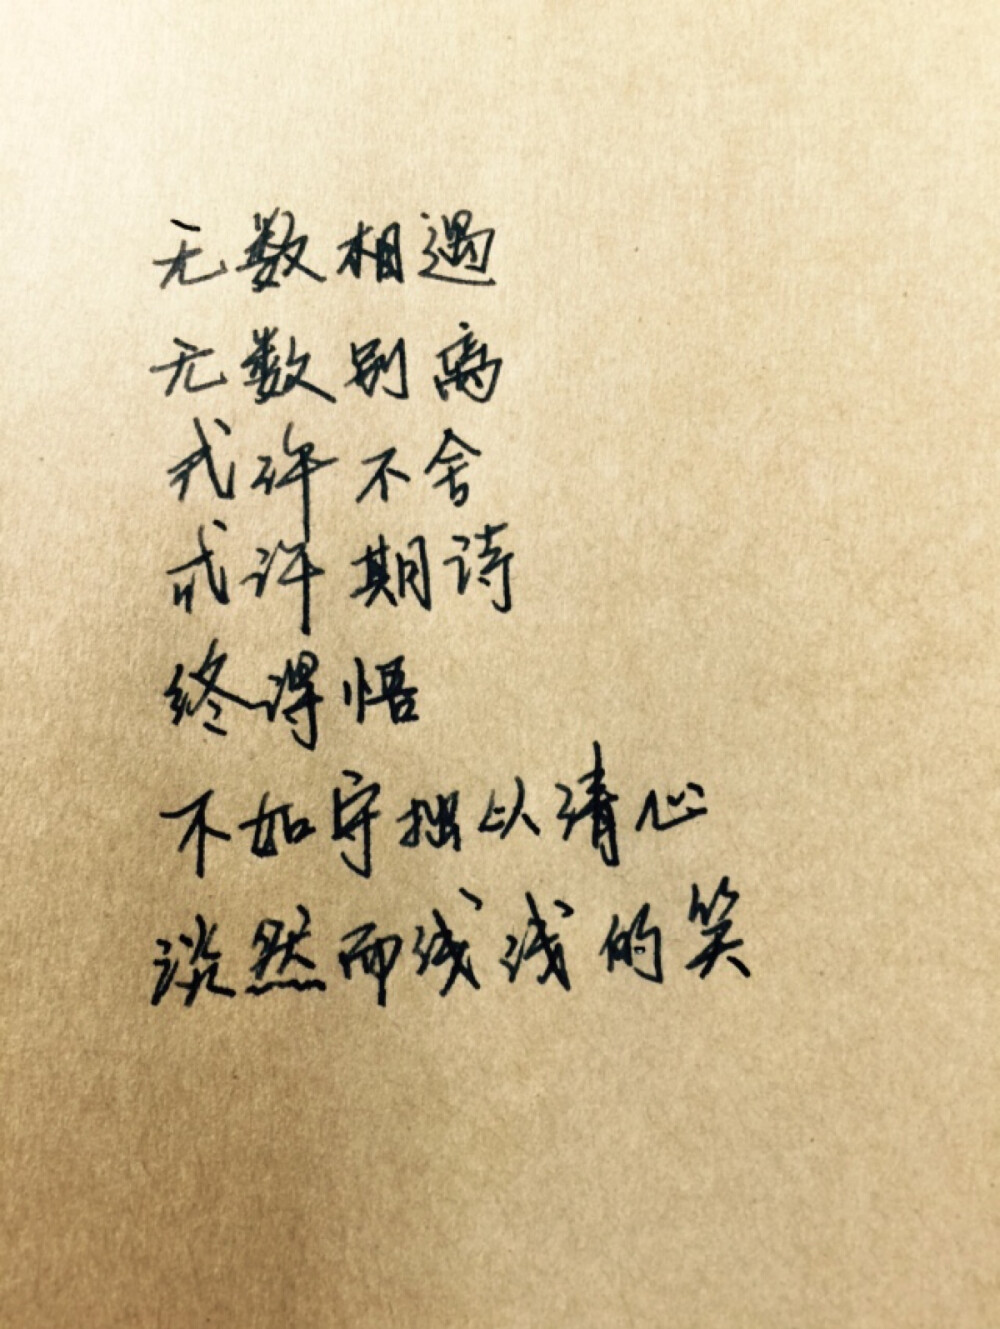 无数相遇
无数别离
或许不舍
或许期待
终得悟
不如守拙以清心
淡然而浅浅的笑